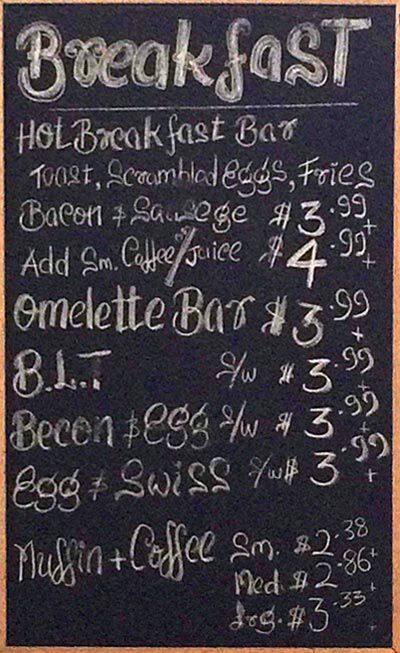 Breakfast
Hot Breakfast Bar
Toast, Scrambled eggs, Fries
Bacon & Sausege $3.99+
Add Sm. Coffee or/Juice $4.99+
Omelette Bar $3.99+
B.L.T S/w $3.99+
Becon & egg S/w $3.99+
egg & Swiss S/w $3.99+
Muffin + Coffee Sm. $2.38
Med. $2.86+
Lrg. $3.33+